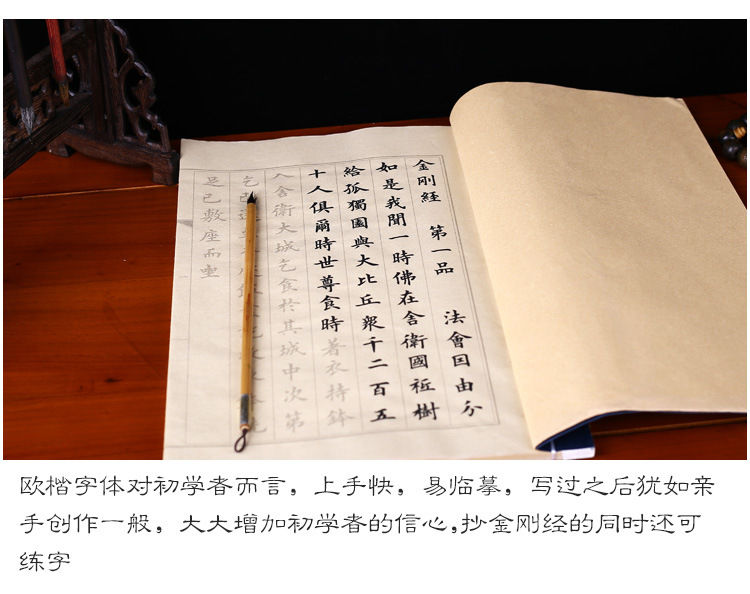 金剛經 第一品 法會囙由分
如是我聞一時佛在舍衛國祗樹
給孤獨園與大比丘衆千二百五
十人俱爾時世尊食時著衣持鉢
入舍衛大城乞食於其城中次第
乞已還至
足已敷座而坐
欧楷字体对初学者而言，上手快，易临摹，写过之后犹如亲
手创作一般，大大增加初学者的信心,抄金刚经的同时还可
练字